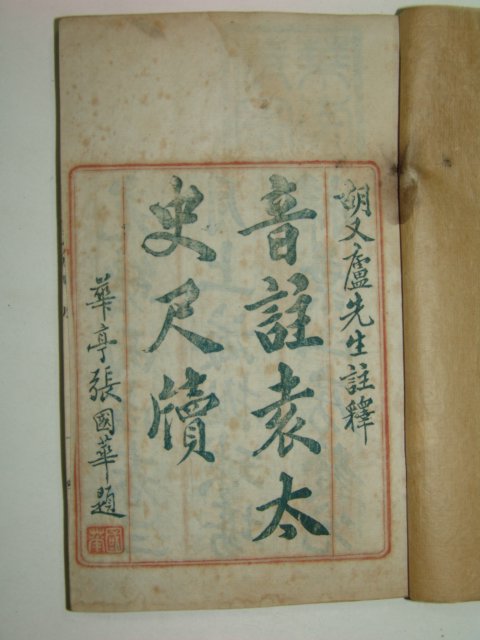 胡又廬先生註釋
音註袁太
史尺牘
華亭張國華題
國華